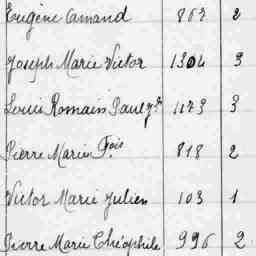 Eugène Amand 863 2
Joseph Marie Victor 1304 3
Louis Romain Paul 1173 3
Pierre Marie Fois 818 2
Victor Marie Julien 103 1
Pierre Marie Théophile 996 2